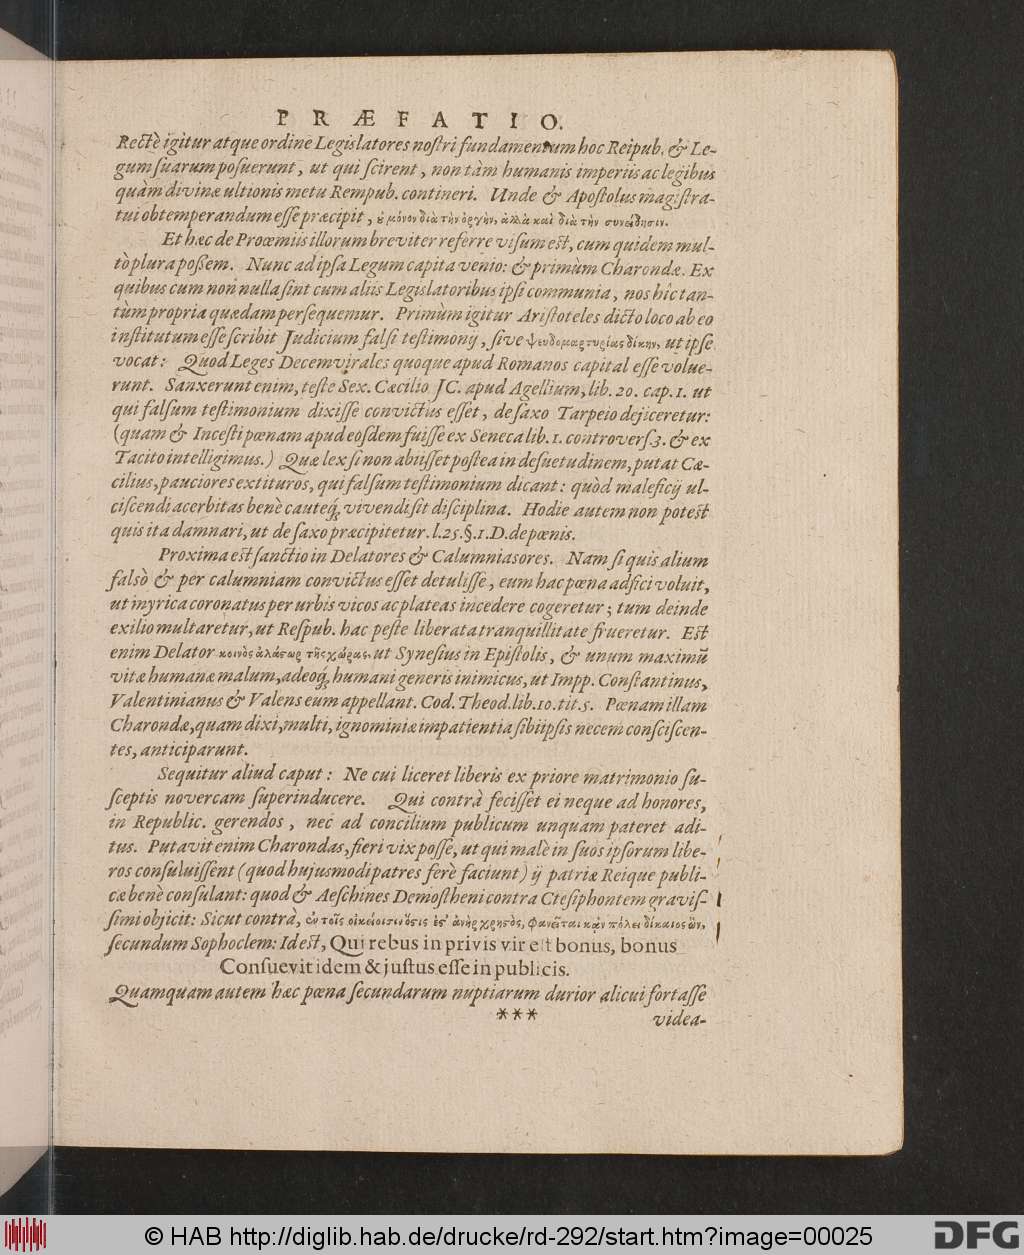 PRÆFATIO.
Rectè igitur atque ordine Legislatores nostri fundamentum hoc Reipub. & Le-
gum suarum posuerunt, ut qui scirent, non tàm humanis imperiis ac legibus
quàm divinæ ultionis metu Rempub. contineri. Unde & Apostolus magistra-
tui obtemperandum esse præcipit, ȣ μόνον διὰ τὴν ὀργὴν, ἀλλὰ καὶ διὰ τὴν συνείδησιν.
Et hæc de Proœmiis illorum breviter referre visum est, cum quidem mul-
tò plura poßem. Nunc ad ipsa Legum capita venio: & primùm Charondæ. Ex
quibus cum non nulla sint cum aliis Legislatoribus ipsi communia, nos hîc tan-
tùm propria quædam persequemur. Primùm igitur Aristoteles dicto loco ab eo
institutum esse scribit Judicium falsi testimonij, sive ψευδομαρτυρίας δίκην, ut ipse
vocat: Quod Leges Decemvirales quoque apud Romanos capital esse volue-
runt. Sanxerunt enim, teste Sex. Cæcilio JC. apud Agellium, lib. 20. cap. 1. ut
qui falsum testimonium dixisse convictus esset, de saxo Tarpeio dejiceretur:
(quam & Incesti pœnam apud eosdem fuisse ex Seneca lib. 1. controvers 3. & ex
Tacito intelligimus.) Quæ lex si non abiisset postea in desuetudinem, putat Cæ-
cilius, pauciores extituros, qui falsum testimonium dicant: quòd maleficij ul-
ciscendi acerbitas benè cauteq́; vivendi sit disciplina. Hodie autem non potest
quis ita damnari, ut de saxo præcipitetur. l. 25. §. 1. D. de pœnis.
Proxima est sanctio in Delatores & Calumniasores. Nam si quis alium
falsò & per calumniam convictus esset detulisse, eum hac pœna adfici voluit,
ut myrica coronatus per urbis vicos ac plateas incedere cogeretur; tum deinde
exilio multaretur, ut Respub. hac peste liberata tranquillitate frueretur. Est
enim Delator κοινὸς ἀλάστωρ τῆς χώρας, ut Synesius in Epistolis, & unum maximũ
vitæ humanæ malum, adeoq́; humani generis inimicus, ut Impp. Constantinus,
Valentinianus & Valens eum appellant. Cod. Theod. lib. 10. tit. 5. Pœnam illam
Charondæ, quam dixi, multi, ignominiæ impatientia sibiipsis necem consciscen-
tes, anticiparunt.
Sequitur aliud caput: Ne cui liceret liberis ex priore matrimonio su-
sceptis novercam superinducere. Qui contrà fecisset ei neque ad honores,
in Republic. gerendos, nec ad concilium publicum unquam pateret adi-
tus. Putavit enim Charondas, fieri vix posse, ut qui malè in suos ipsorum libe-
ros consuluissent (quod hujusmodi patres ferè faciunt) ij patriæ Reique publi-
cæ benè consulant: quod & Aeschines Demostheni contra Ctesiphontem gravis-
simi objicit: Sicut contrà, ἐν τοῖς οἰκείοισιν ὅστις ἔστ' ἀνὴρ χρηστὸς, φανεῖται κἀν πόλει δίκαιος ὢν,
secundum Sophoclem: Id est, Qui rebus in privis vir est bonus, bonus
Consuevit idem & justus esse in publicis.
Quamquam autem hæc pœna secundarum nuptiarum durior alicui fortasse
*** videa-
© HAB http://diglib.hab.de/drucke/rd-292/start.htm?image=00025
DFG